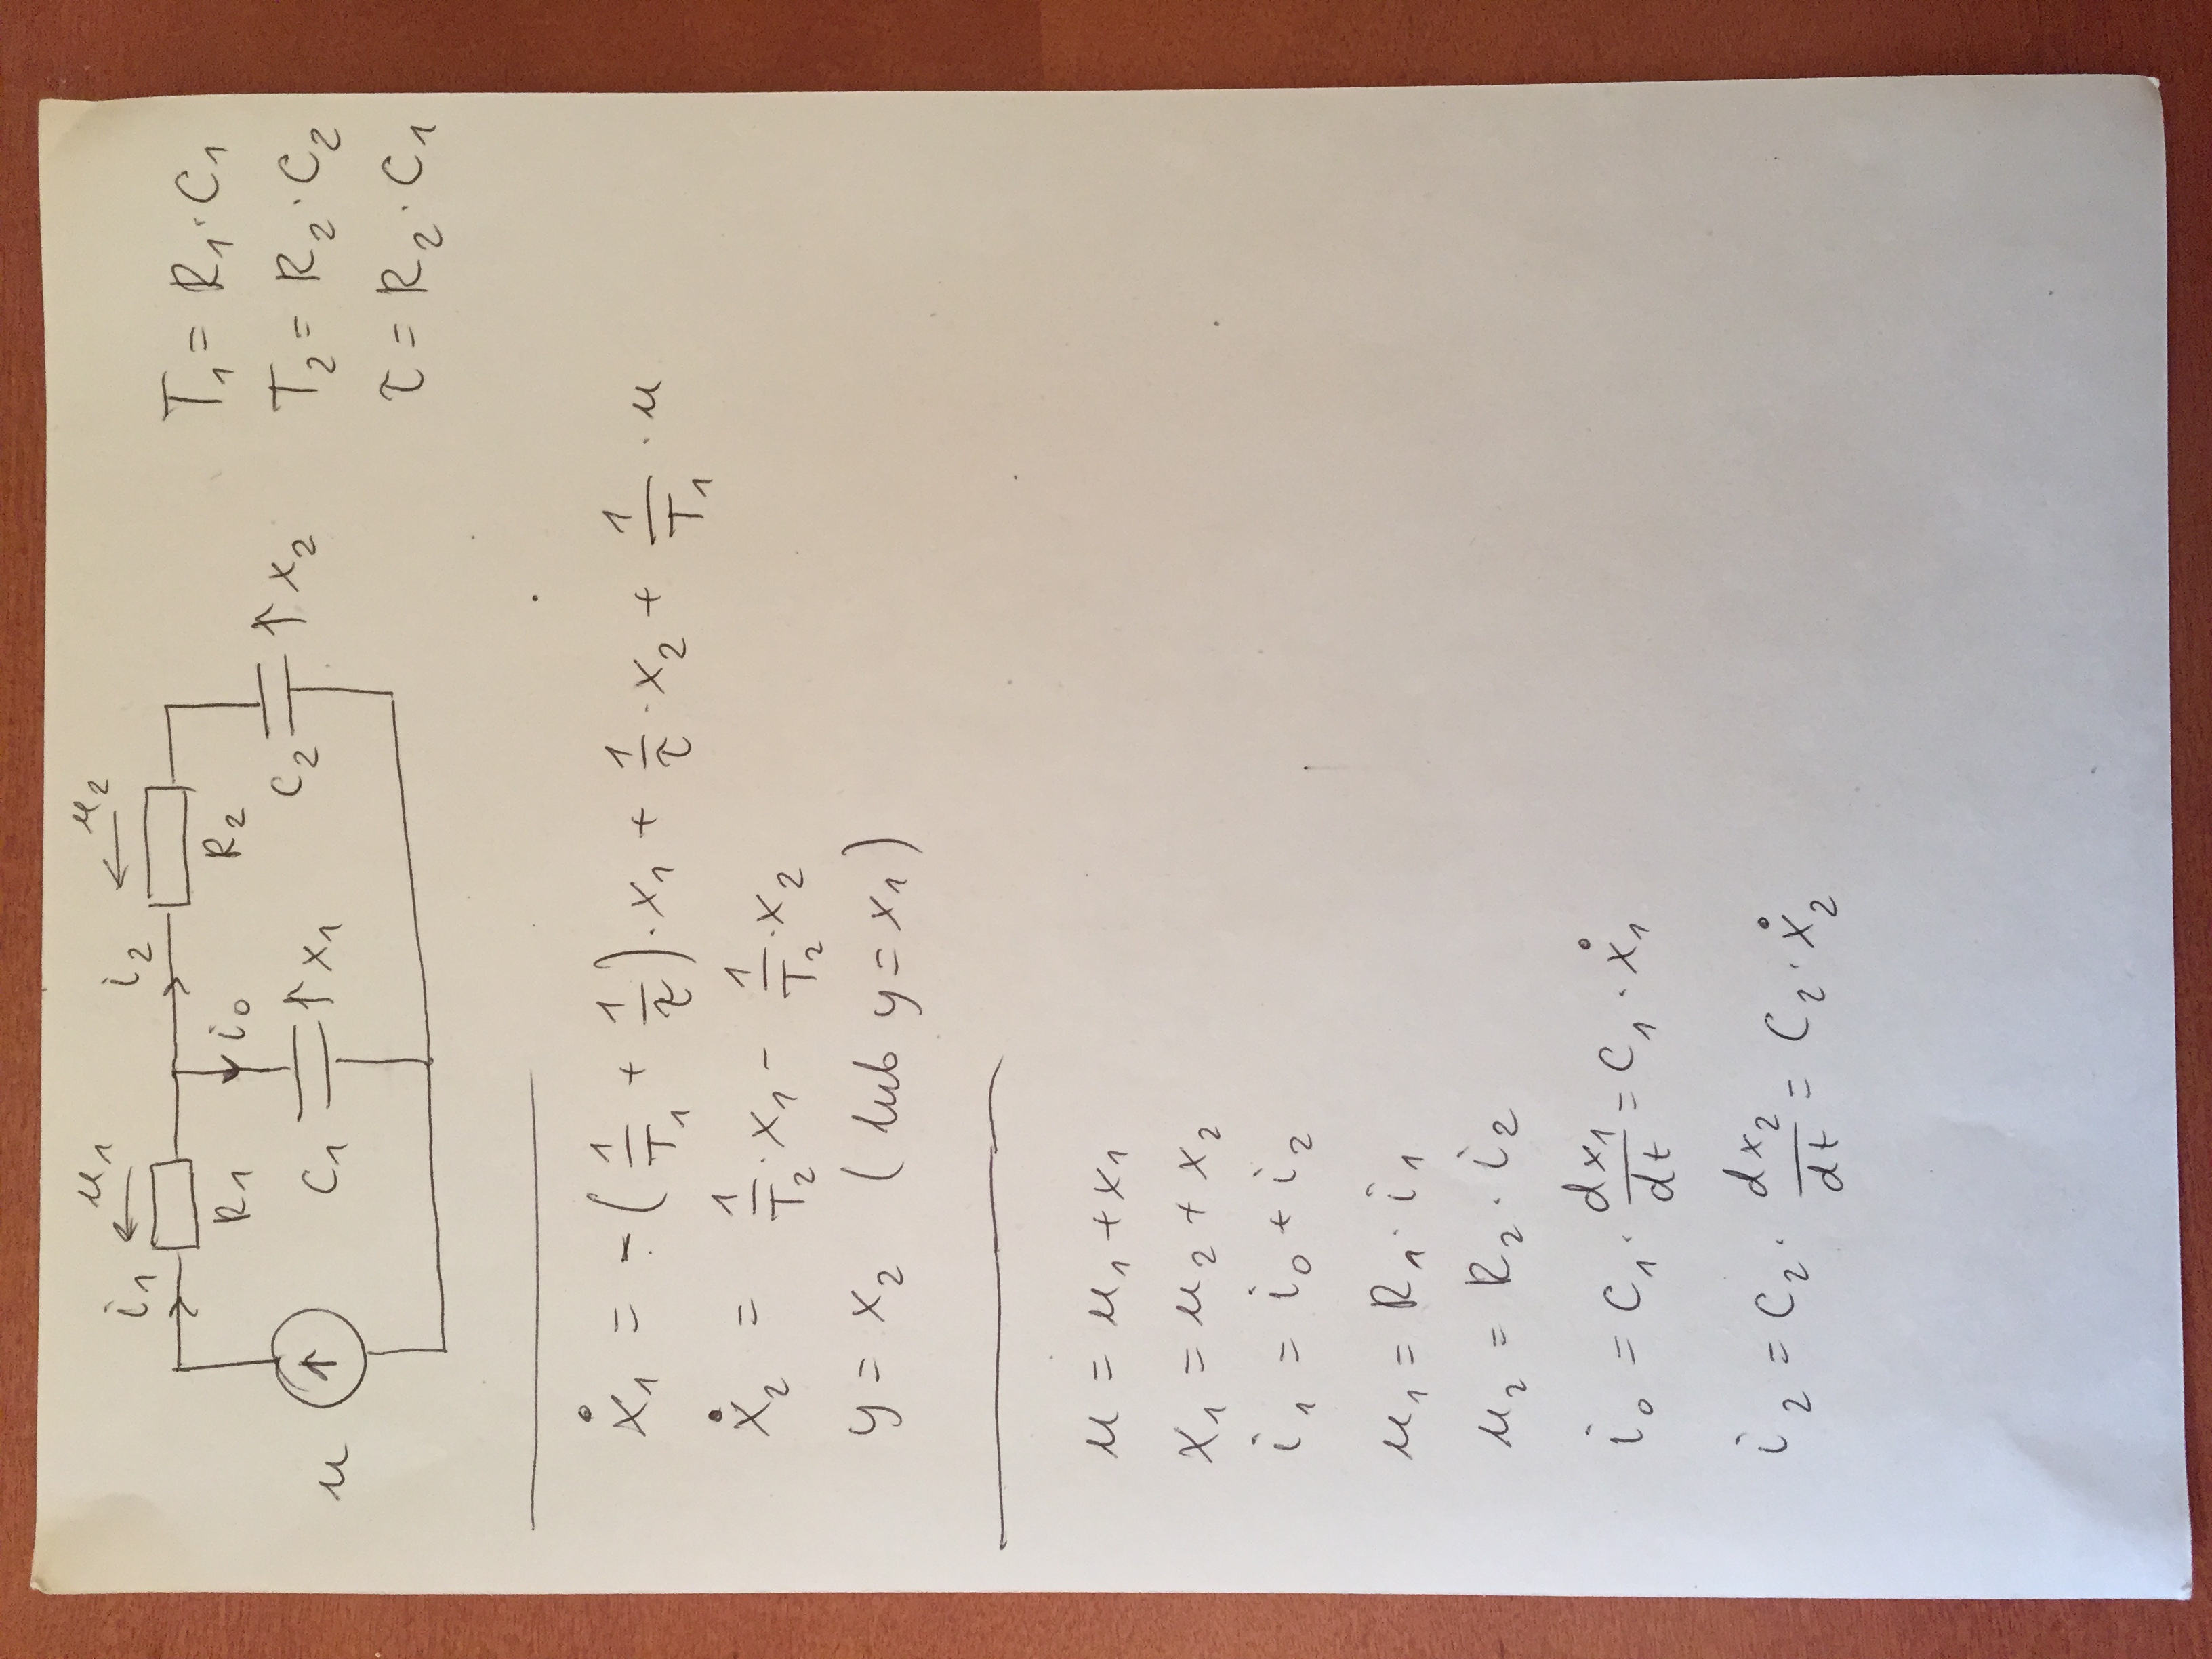 i₁ u₁ i₂ u₂
R₁ i₀ R₂
u C₁ x₁ C₂ x₂
T₁ = R₁·C₁
T₂ = R₂·C₂
τ = R₂·C₁
ẋ₁ = -(1/T₁ + 1/τ)·x₁ + 1/τ·x₂ + 1/T₁·u
ẋ₂ = 1/T₂·x₁ - 1/T₂·x₂
y = x₂ (lub y = x₁)
u = u₁ + x₁
x₁ = u₂ + x₂
i₁ = i₀ + i₂
u₁ = R₁·i₁
u₂ = R₂·i₂
i₀ = C₁·dx₁/dt = C₁·ẋ₁
i₂ = C₂·dx₂/dt = C₂·ẋ₂